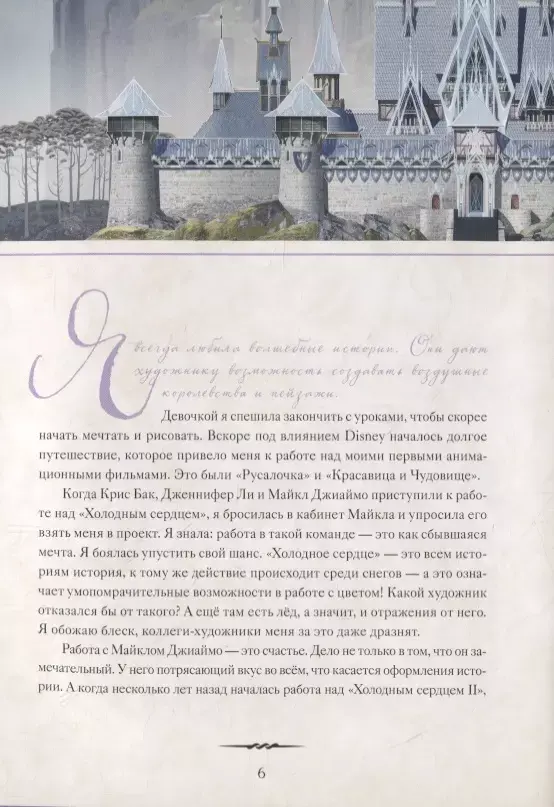 Я всегда любила волшебные истории. Они дают
художнику возможность создавать воздушные
королевства и пейзажи.
Девочкой я спешила закончить с уроками, чтобы скорее
начать мечтать и рисовать. Вскоре под влиянием Disney началось долгое
путешествие, которое привело меня к работе над моими первыми анима-
ционными фильмами. Это были «Русалочка» и «Красавица и Чудовище».
Когда Крис Бак, Дженнифер Ли и Майкл Джиаймо приступили к рабо-
те над «Холодным сердцем», я бросилась в кабинет Майкла и упросила его
взять меня в проект. Я знала: работа в такой команде — это как сбывшаяся
мечта. Я боялась упустить свой шанс. «Холодное сердце» — это всем исто-
риям история, к тому же действие происходит среди снегов — а это озна-
чает умопомрачительные возможности в работе с цветом! Какой художник
отказался бы от такого? А ещё там есть лёд, а значит, и отражения от него.
Я обожаю блеск, коллеги-художники меня за это даже дразнят.
Работа с Майклом Джиаймо — это счастье. Дело не только в том, что он за-
мечательный. У него потрясающий вкус во всём, что касается оформления исто-
рии. А когда несколько лет назад началась работа над «Холодным сердцем II»,
6